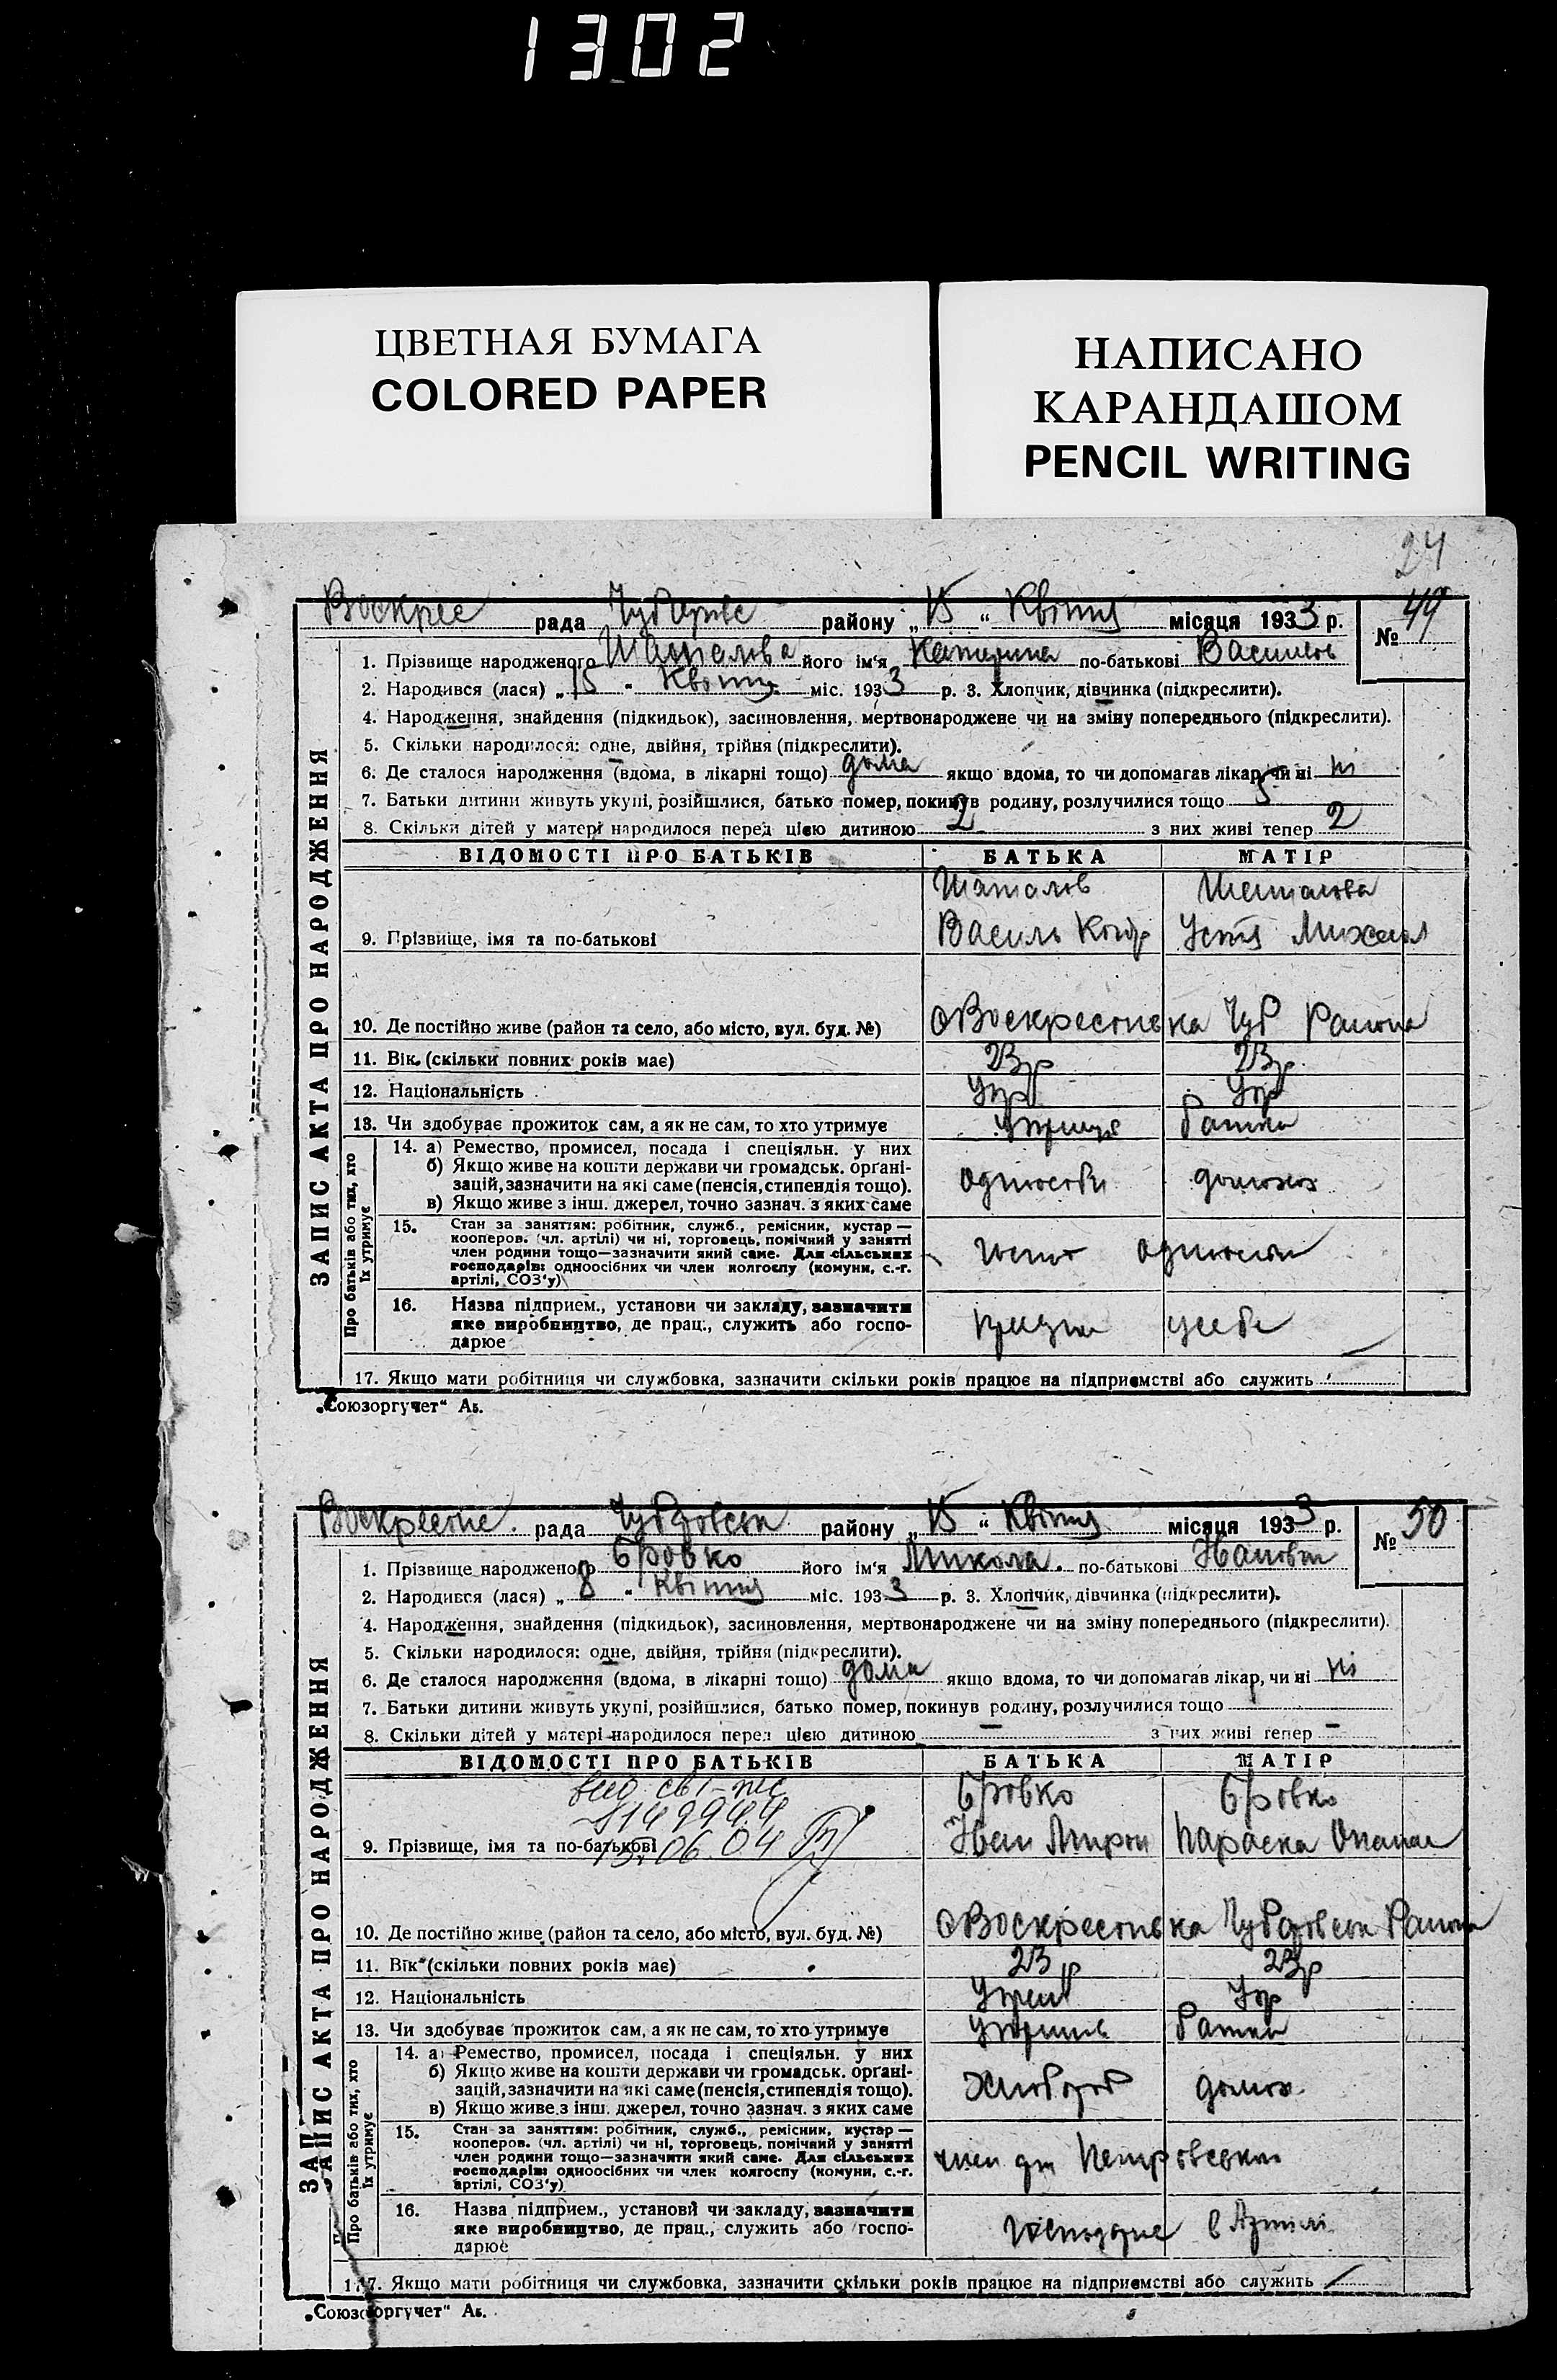 1302
ЦВЕТНАЯ БУМАГА
COLORED PAPER
НАПИСАНО
КАРАНДАШОМ
PENCIL WRITING
24
ЗАПИС АКТА ПРО НАРОДЖЕННЯ
Воскрес рада району „15“ Квітня місяця 1933 р. № 49
1. Прізвище народженого його ім'я Катерина по-батькові Василів
2. Народився (лася) „15“ Квітня міс. 1933 р. 3. Хлопчик, дівчинка (підкреслити).
4. Народження, знайдення (підкидьок), засиновлення, мертвонароджене чи на зміну попереднього (підкреслити).
5. Скільки народилося: одне, двійня, трійня (підкреслити).
6. Де сталося народження (вдома, в лікарні тощо) дома якщо вдома, то чи допомагав лікар, чи ні ні
7. Батьки дитини живуть укупі, розійшлися, батько помер, покинув родину, розлучилися тощо
8. Скільки дітей у матері народилося перед цією дитиною 2 з них живі тепер 2
ВІДОМОСТІ ПРО БАТЬКІВ БАТЬКА МАТІР
Шаталів Шаталова
9. Прізвище, імя та по-батькові Василь Устя Михайл
10. Де постійно живе (район та село, або місто, вул. буд. №) Воскресенька Чуб Района
11. Вік (скільки повних років має) 23р 23р.
12. Національність Укр Укр
13. Чи здобуває прожиток сам, а як не сам, то хто утримує
Про батьків або тих, хто їх утримує
14. а) Ремество, промисел, посада і спеціяльн. у них
б) Якщо живе на кошти держави чи громадськ. органі-
зацій, зазначити на які саме (пенсія, стипендія тощо).
в) Якщо живе з інш. джерел, точно зазнач. з яких саме
15. Стан за заняттям: робітник, служб., ремісник, кустар —
кооперов. (чл. артілі) чи ні, торговець, помічний у занятті
член родини тощо—зазначити який саме. Для сільських
господарів: одноосібних чи член колгоспу (комуни, с.-г.
артілі, СОЗ'у)
16. Назва підприєм., установи чи закладу, зазначити
яке виробництво, де прац., служить або госпо-
дарює у себе
17. Якщо мати робітниця чи службовка, зазначити скільки років працює на підприємстві або служить
„Союзоргучет“ А5.
ЗАПИС АКТА ПРО НАРОДЖЕННЯ
рада району „15“ Квітня місяця 1933 р. № 50
1. Прізвище народженого Бровко його ім'я Микола. по-батькові Іванович
2. Народився (лася) „8“ Квітня міс. 1933 р. 3. Хлопчик, дівчинка (підкреслити).
4. Народження, знайдення (підкидьок), засиновлення, мертвонароджене чи на зміну попереднього (підкреслити).
5. Скільки народилося: одне, двійня, трійня (підкреслити).
6. Де сталося народження (вдома, в лікарні тощо) дома якщо вдома, то чи допомагав лікар, чи ні ні
7. Батьки дитини живуть укупі, розійшлися, батько помер, покинув родину, розлучилися тощо
8. Скільки дітей у матері народилося перед цією дитиною — з них живі тепер —
ВІДОМОСТІ ПРО БАТЬКІВ БАТЬКА МАТІР
Бровко Бровко
9. Прізвище, імя та по-батькові Іван Мирон Параска Опанас
15.06.04
10. Де постійно живе (район та село, або місто, вул. буд. №) Воскресенька Района
11. Вік (скільки повних років має) 23р 23р
12. Національність Укр
13. Чи здобуває прожиток сам, а як не сам, то хто утримує
Про батьків або тих, хто їх утримує
14. а) Ремество, промисел, посада і спеціяльн. у них
б) Якщо живе на кошти держави чи громадськ. органі-
зацій, зазначити на які саме (пенсія, стипендія тощо).
в) Якщо живе з інш. джерел, точно зазнач. з яких саме
Хлібороб домох.
15. Стан за заняттям: робітник, служб., ремісник, кустар —
кооперов. (чл. артілі) чи ні, торговець, помічний у занятті
член родини тощо—зазначити який саме. Для сільських
господарів: одноосібних чи член колгоспу (комуни, с.-г.
артілі, СОЗ'у)
член Петровського
16. Назва підприєм., установи чи закладу, зазначити
яке виробництво, де прац., служить або госпо-
дарює господарює в Артілі
17. Якщо мати робітниця чи службовка, зазначити скільки років працює на підприємстві або служить
„Союзоргучет“ А5.